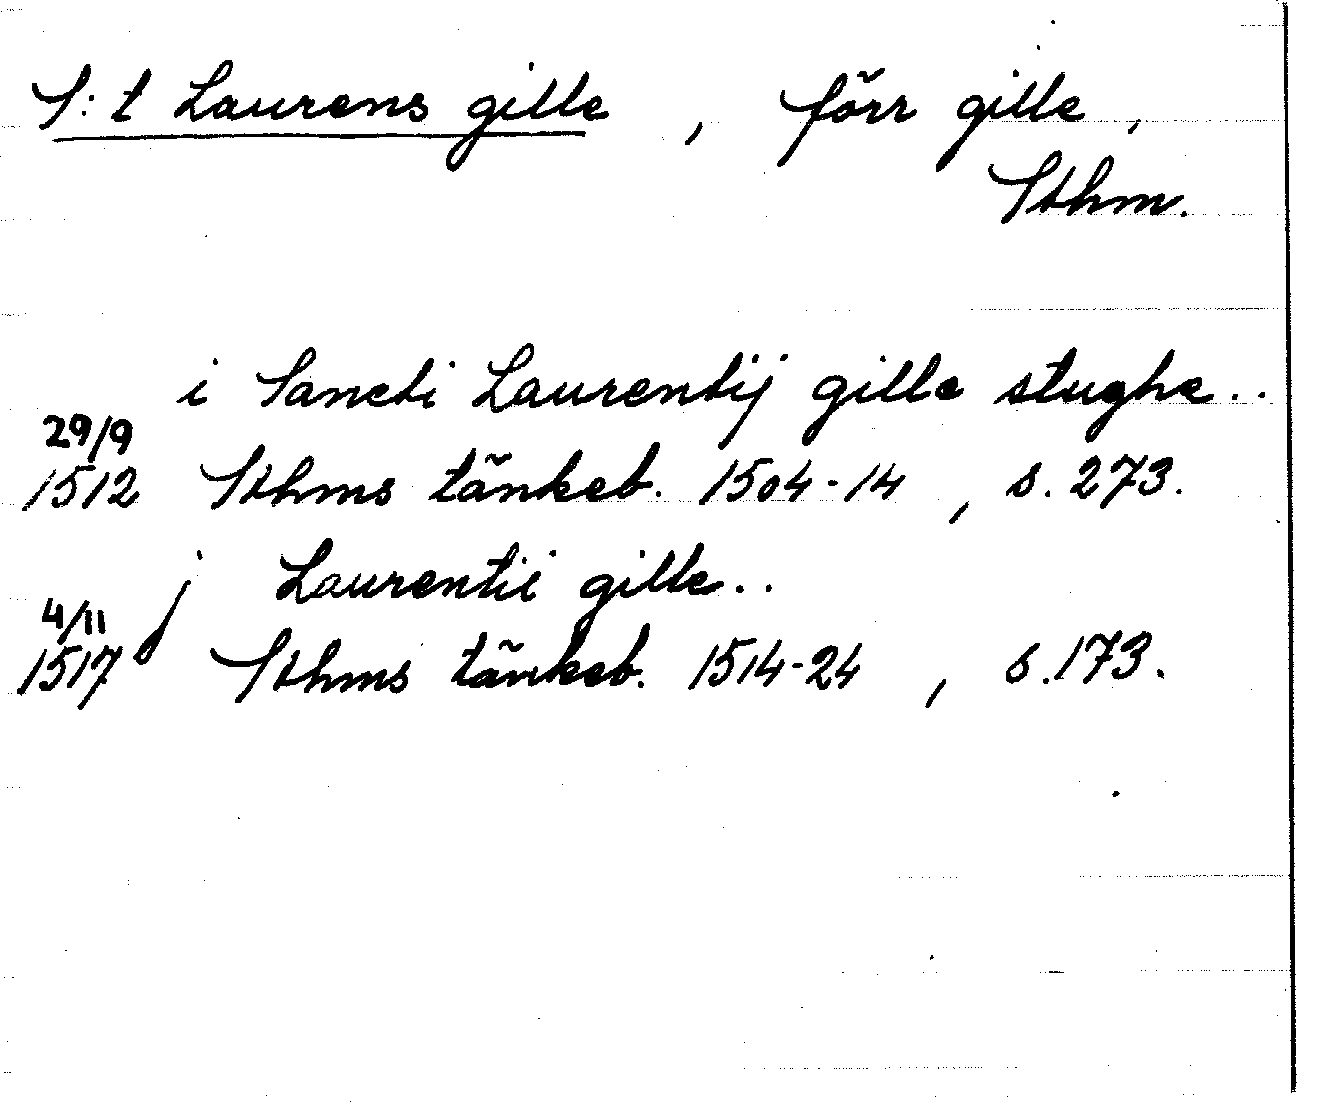 S:t Laurens gille , förr gille,
Sthm.
i Sancti Laurentij gille stughe..
29/9
1512 Sthms tänkeb. 1504-14, s. 273.
j Laurentii gille..
4/11
1517 Sthms tänkeb. 1514-24, s. 173.